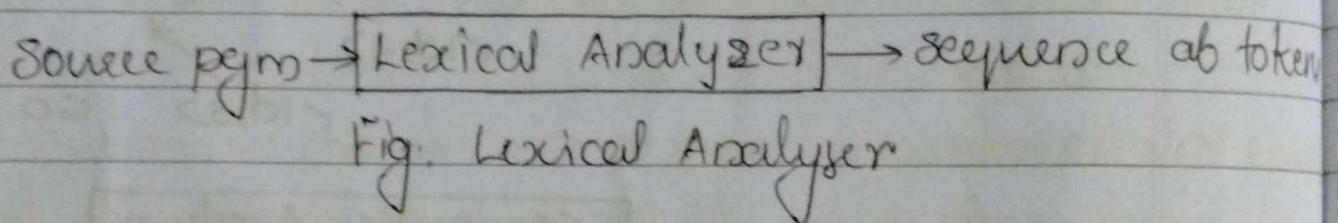 Source pgm → Lexical Analyzer → sequence of token
Fig. Lexical Analyser